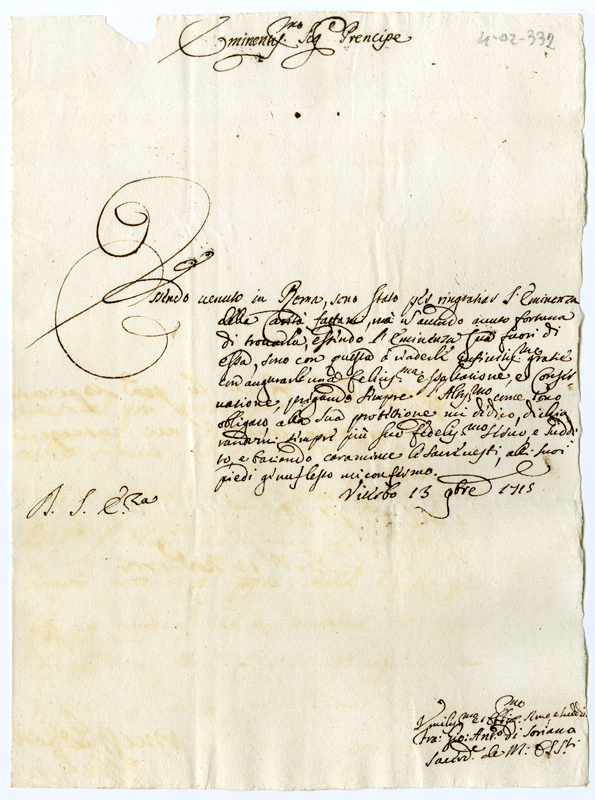 4-02-332
Eminentiss.mo Sig.e Prencipe
Essendo venuto in Roma, sono stato per ringratiar S. Eminenza
della Carità fattami, ma havendo avuto fortuna
di trovarla, essendo l'Eminenza sua fuori di
essa, sono con questa a renderle infinitiss.me gratie
con augurarle una feliciss.ma esaltatione, e conser-
vatione, pregando sempre l'Altiss.mo come sono
obligato alla sua protetione mi dedico, dichia
randomi sempre più suo fedeliss.mo servo e suddi
to, e baciando caramente le sacre vesti, alli suoi
piedi genuflesso mi confermo.
Viterbo 13 9bre 1715
D. S. E.za
Umiliss.mo Servo e suddito
fra Gio: Ant.o di Soriano
Sacerd.e de M: Oss.ti